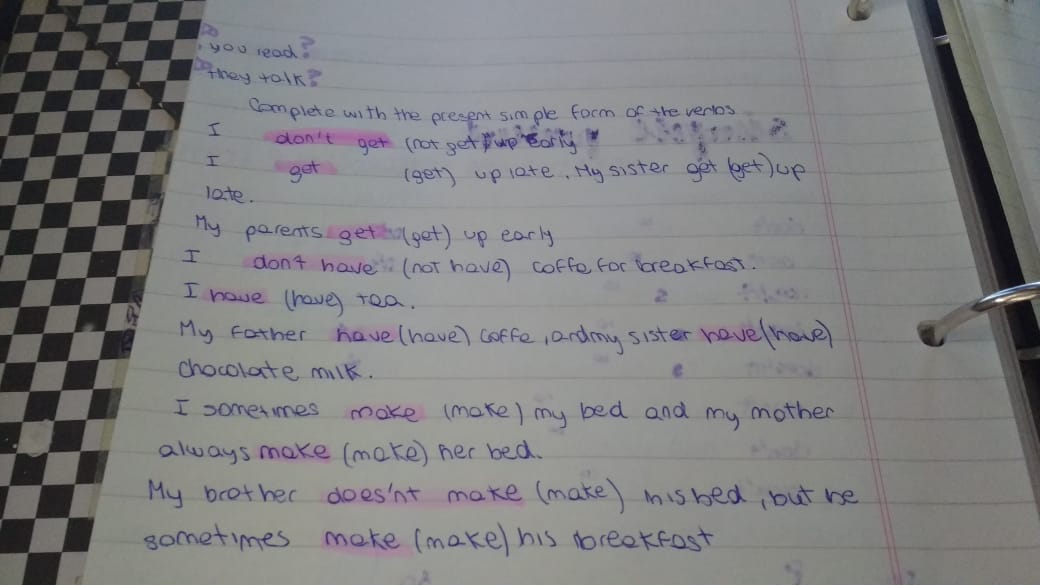 you read?
they talk?
Complete with the present simple form of the verbs
I don't get (not get) up early
I get (get) up late. My sister get (get) up
late.
My parents get (get) up early
I don't have (not have) coffe for breakfast.
I have (have) tea.
My father have (have) coffe, and my sister have (have)
chocolate milk.
I sometimes make (make) my bed and my mother
always make (make) her bed.
My brother does'nt make (make) his bed, but he
sometimes make (make) his breakfast